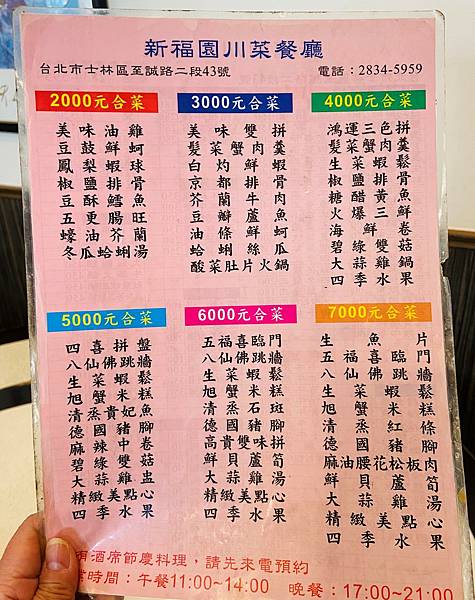 新福園川菜餐廳
台北市士林區至誠路二段43號 電話：2834-5959
2000元合菜
美味油雞
豆鼓鮮蚵
鳳梨蝦球
椒鹽排骨
豆酥鱈魚
五更腸旺
蠔油芥蘭
冬瓜蛤蜊湯
3000元合菜
美味雙拼
髮菜蟹肉羹
白灼鮮蝦
京都排骨
芥蘭牛肉
豆瓣鱸魚
油條鮮蚵
蛤蜊絲瓜
酸菜肚片火鍋
4000元合菜
鴻運三色拼
髮菜蟹肉羹
生菜蝦鬆
椒鹽排骨
糖醋黃魚
火爆三鮮
海鮮卷
碧綠雙菇
大蒜雞鍋
四季水果
5000元合菜
四喜拼盤
八仙佛跳牆
生菜蝦鬆
旭蟹米糕
清蒸貴妃魚
德國豬腳
麻辣中卷
碧綠雙菇
大蒜雞盅
精緻美點心
四季水果
6000元合菜
五福喜臨門
八仙佛跳牆
生菜蝦鬆
旭蟹米糕
清蒸石斑
德國豬腳
高貴雙味拼
鮮貝蘆筍
大蒜雞湯
精緻美點心
四季水果
7000元合菜
生魚片
五福喜臨門
八仙佛跳牆
生菜蝦鬆
旭蟹米糕
清蒸紅條
德國豬腳
麻油腰花松板肉
鮮貝蘆筍
大蒜雞湯
精緻美點心
四季水果
有酒席節慶料理，請先來電預約
業時間：午餐11:00~14:00 晚餐：17:00~21:00